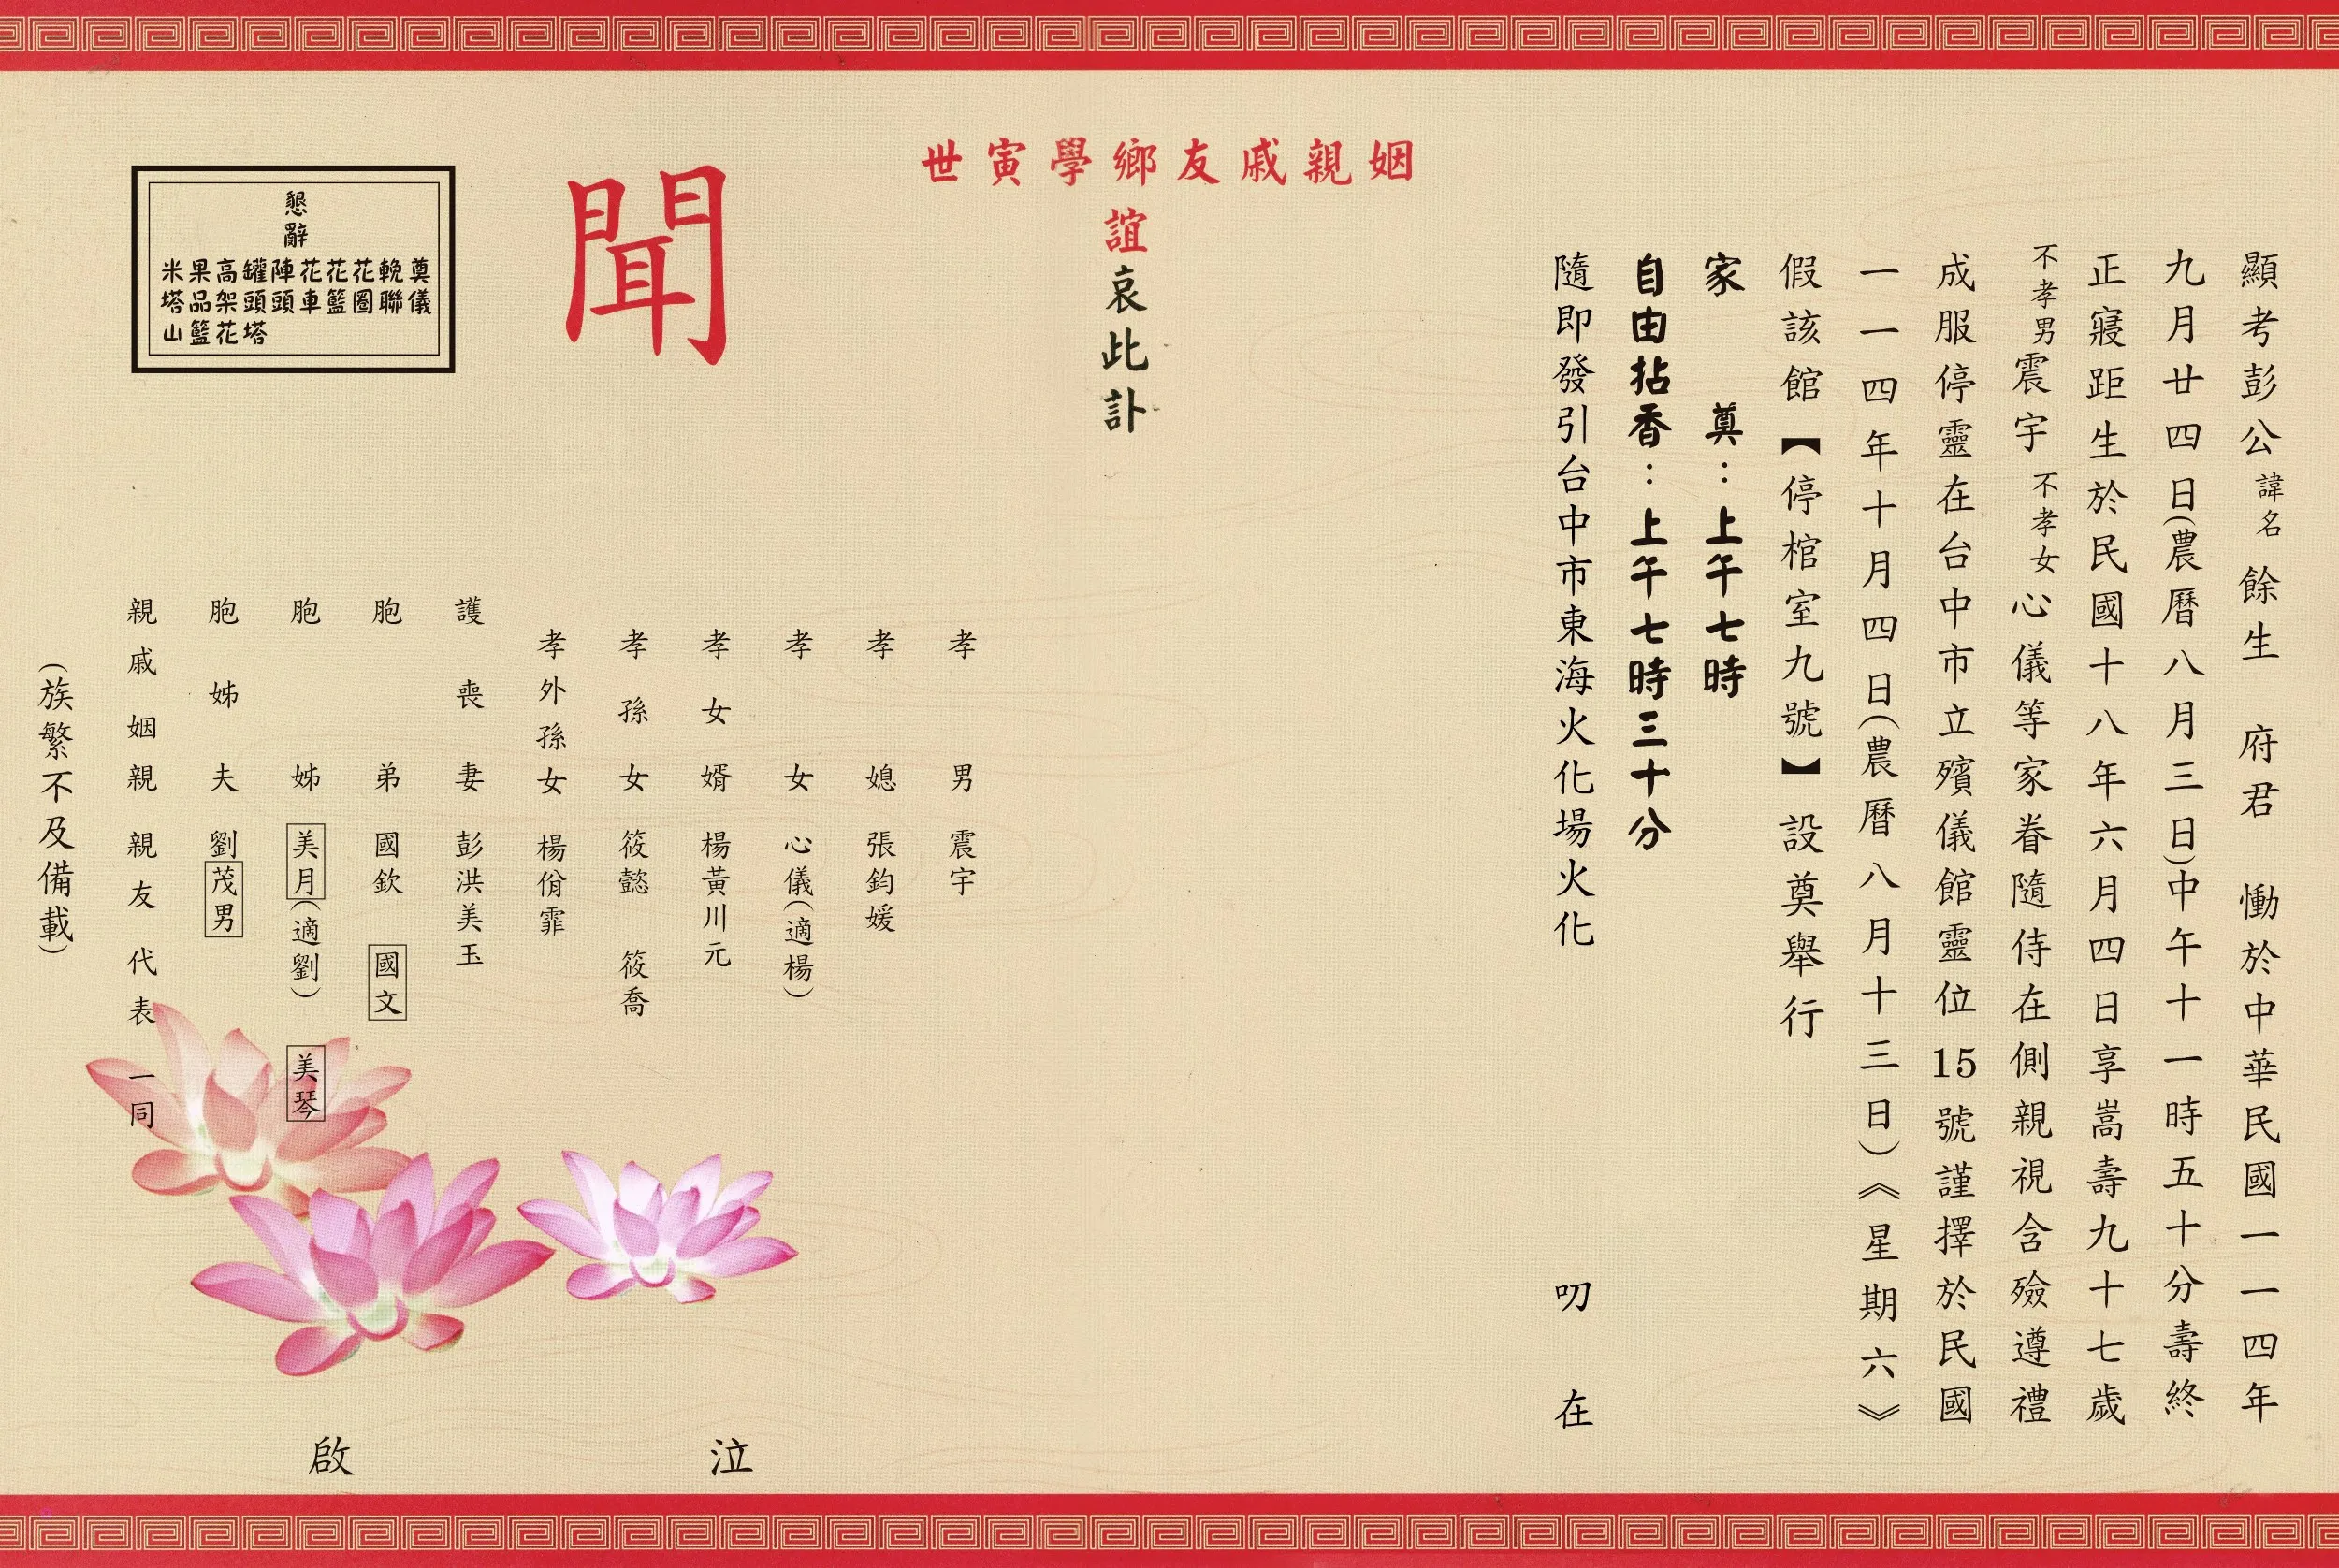 顯考彭公諱名餘生　府君　慟於中華民國一一四年
九月廿四日(農曆八月三日)中午十一時五十分壽終
正寢距生於民國十八年六月四日享嵩壽九十七歲
不孝男震宇不孝女心儀等家眷隨侍在側親視含殮遵禮
成服停靈在台中市立殯儀館靈位15號謹擇於民國
一一四年十月四日(農曆八月十三日)《星期六》
假該館【停棺室九號】設奠舉行
家　奠：上午七時
自由拈香：上午七時三十分
隨即發引台中市東海火化場火化　叨　在
姻親戚友鄉學寅世
誼哀此訃
聞
孝男　震宇
孝媳　張鈞媛
孝女　心儀(適楊)
孝女婿　楊黃川元
孝孫女　筱懿　筱喬
孝外孫女　楊佾霏
護喪妻　彭洪美玉
胞弟　國欽　國文
胞姊　美月(適劉)　美琴
胞姊夫　劉茂男
親戚姻親親友代表一同
(族繁不及備載)
泣　啟
懇辭
奠儀
輓聯
花圈
花籃
花車
陣頭
罐頭塔
高架花
果品籃
米塔山